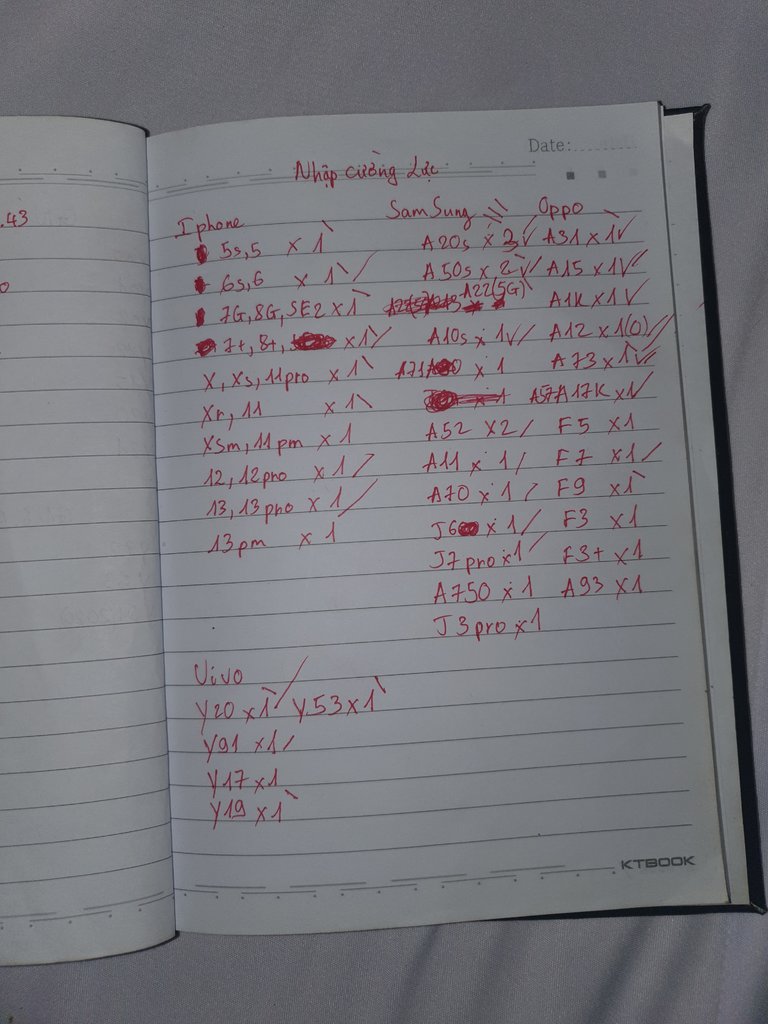 .43
Date:
Nhập cường lực
Iphone
5s,5 x 1
6s,6 x 1
7G,8G,SE2 x1
7+,8+, x1
X, Xs, 11pro x1
Xr, 11 x1
Xsm, 11pm x1
12, 12pro x1
13, 13pro x1
13pm x 1
SamSung
A20s x 3
A50s x 2
A22(5G)
A10s x 1
A71 x 1
A52 x2
A11 x 1
A70 x 1
J6 x 1
J7 pro x1
A750 x 1
J3 pro x1
Oppo
A31 x 1
A15 x1
A1K x1
A12 x1(0)
A73 x1
A57A17K x1
F5 x1
F7 x1
F9 x1
F3 x1
F3+ x1
A93 x1
Vivo
Y20 x1 Y53 x1
Y91 x1
Y17 x1
Y19 x1
KTBOOK